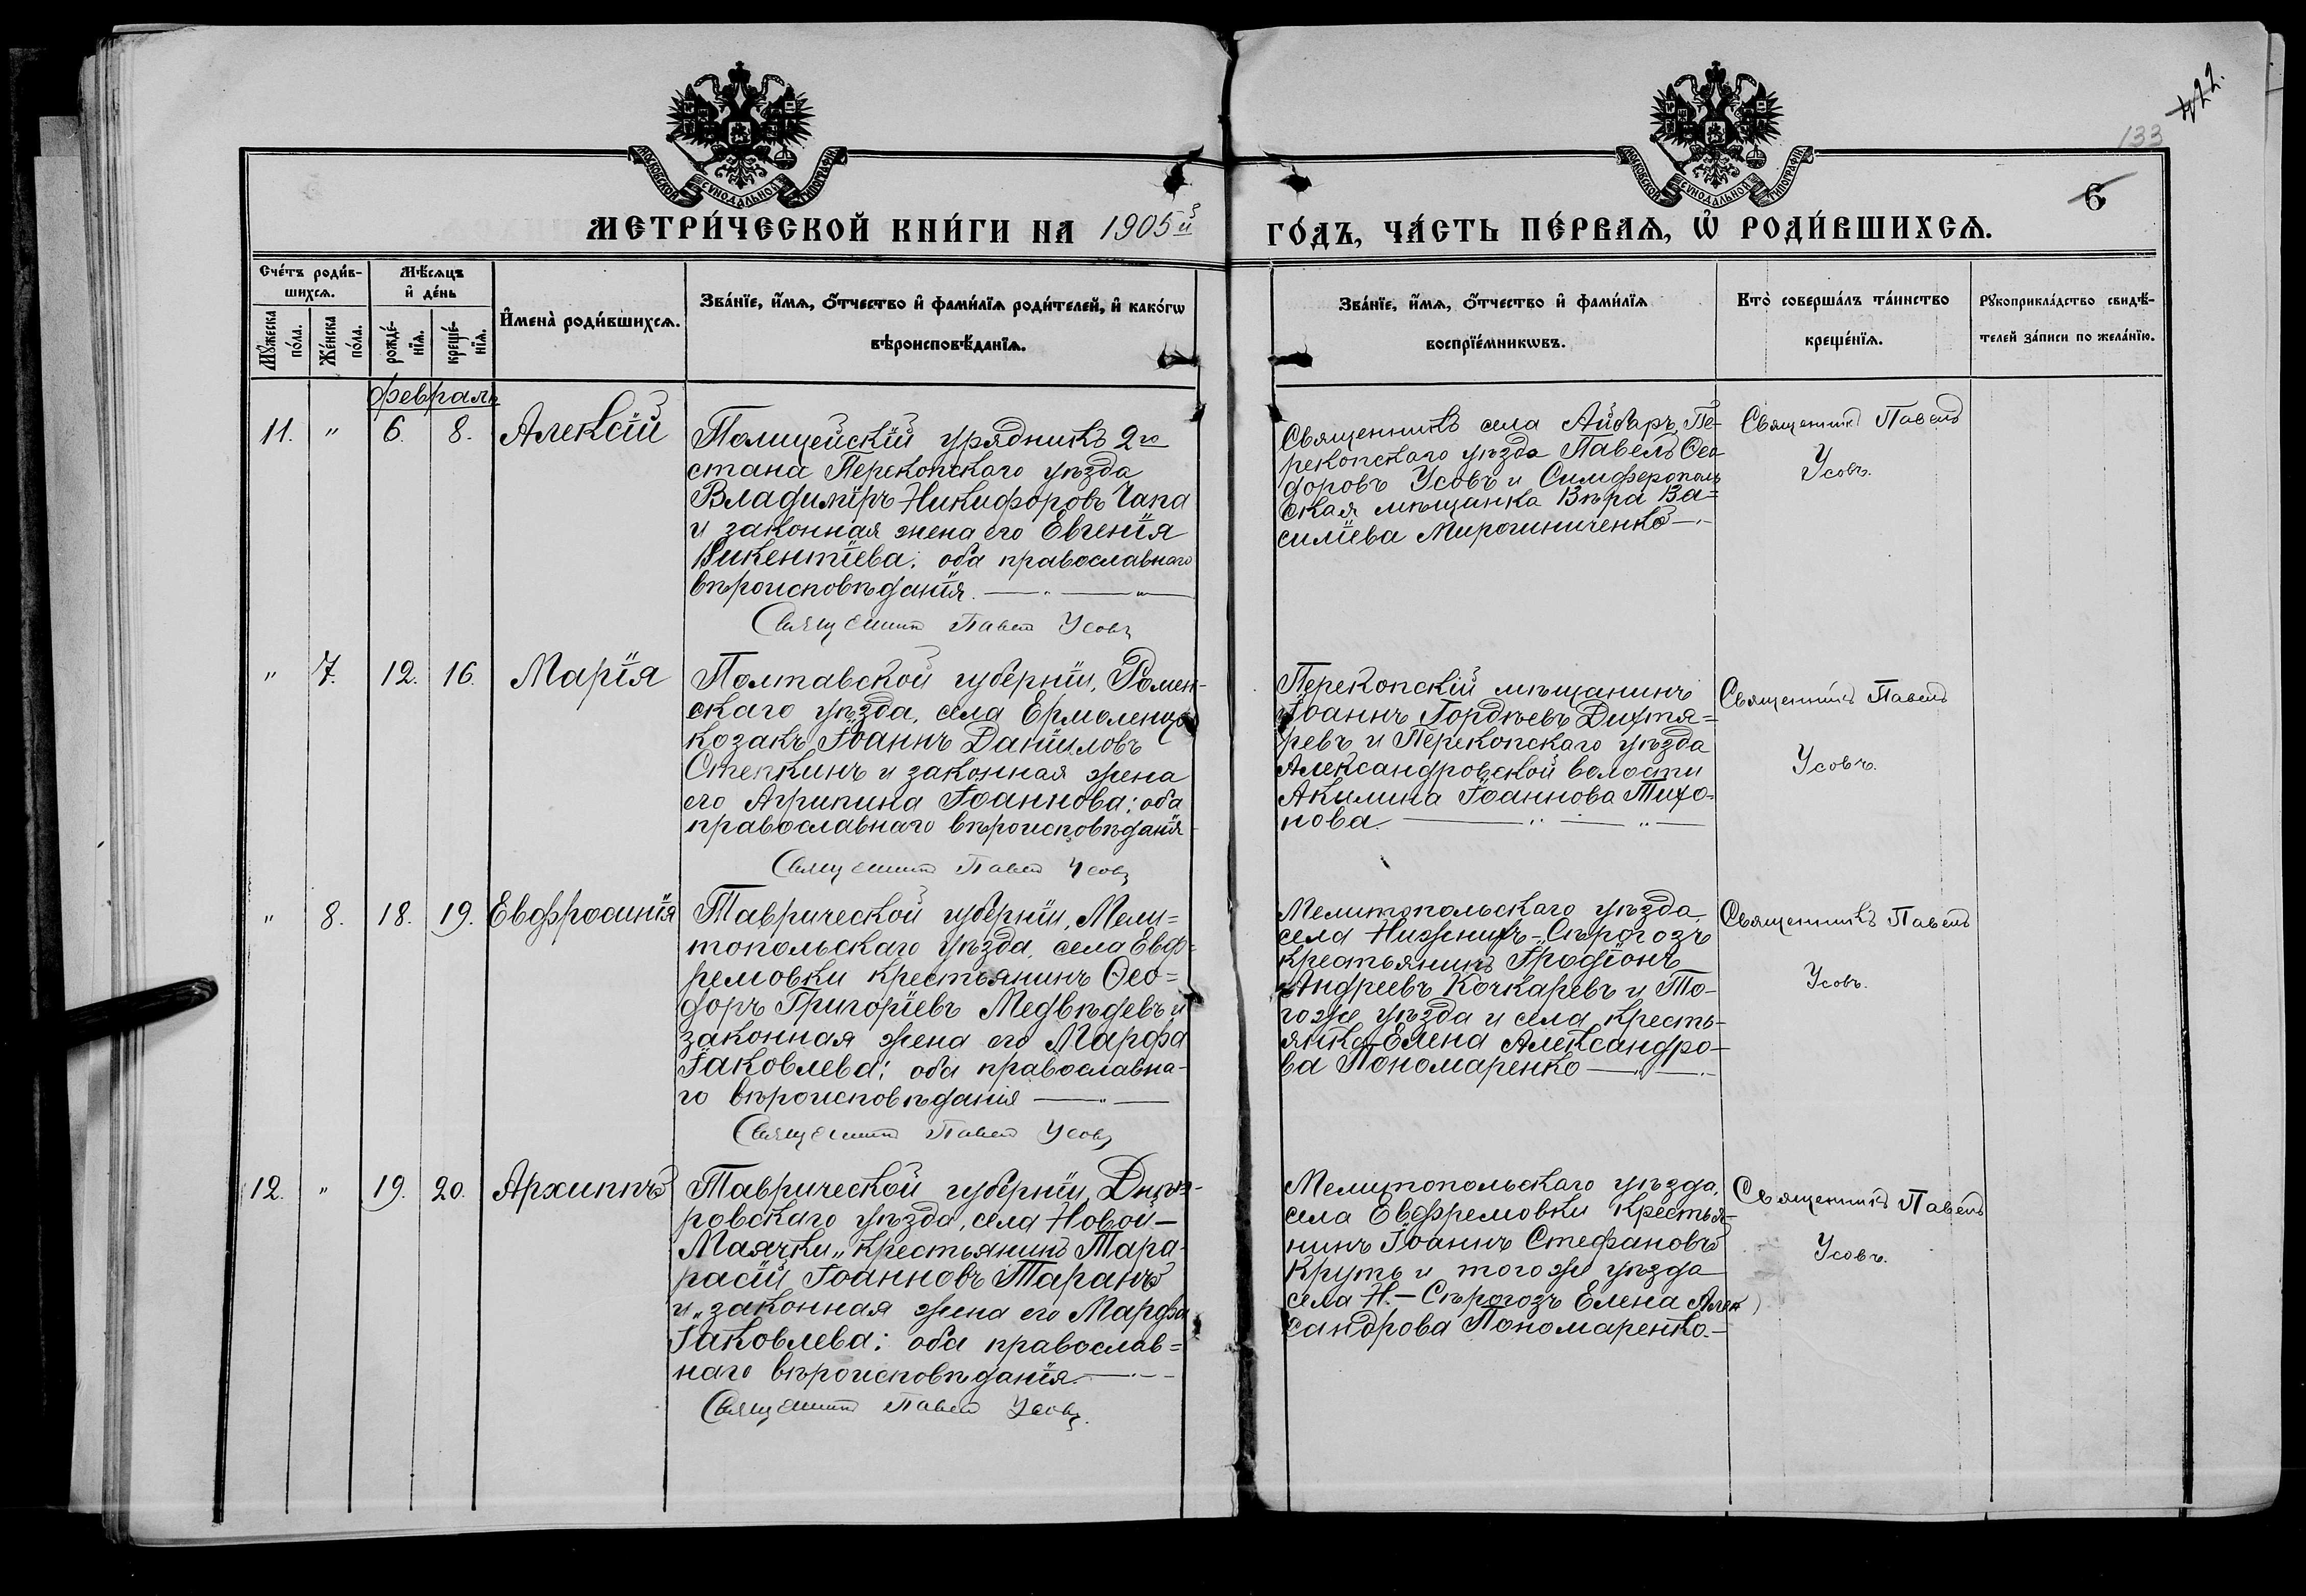 422.
133
МОСКОВСКОЙ СѴНОДАЛЬНОЙ ТИПОГРАФІИ
МОСКОВСКОЙ СѴНОДАЛЬНОЙ ТИПОГРАФІИ
6
МЕТРИ́ЧЕСКОЙ КНИ́ГИ НА 1905й
ГО́ДЪ, ЧА́СТЬ ПЕ́РВАѦ, Ѡ҆ РОДИ́ВШИХСѦ.
Сче́тъ роди́в-
шихсѧ.
Мꙋ́жеска
по́ла.
Же́нска
по́ла.
Мѣ́сѧцъ
и҆ де́нь
рожде́-
нїѧ.
креще́-
нїѧ.
И҆мена̀ роди́вшихсѧ.
Зва́нїе, и҆́мѧ, ѻ҆́тчество и҆ фами́лїѧ роди́телей, и҆ како́гѡ
вѣроисповѣ́данїѧ.
Зва́нїе, и҆́мѧ, ѻ҆́тчество и҆ фами́лїѧ
воспрїе́мникѡвъ.
Кто̀ соверша́лъ та́инство
креще́нїѧ.
Рꙋкоприкла́дство свидѣ́-
телей за́писи по жела́нїю.
февраль
11. " 6. 8. Алексій
Полицейскій урядникъ 2го
стана Перекопскаго уѣзда
Владиміръ Никифоровъ Чапа
и законная жена его Евгенія
Викентіева: оба православнаго
вѣроисповѣданія.
Священникъ Павелъ Усовъ
Священникъ села Айбаръ, Пе-
рекопскаго уѣзда Павелъ Ѳео-
доровъ Усовъ и Симферополь
ская мѣщанка Вѣра Ва=
силіева Мирошниченко
Священникъ Павелъ
Усовъ.
" 7. 12. 16. Марія
Полтавской губерніи, Ромен-
скаго уѣзда, села
козакъ Іоаннъ Даніиловъ
Степкинъ и законная жена
его Агрипина Іоаннова: оба
православнаго вѣроисповѣданія
Священникъ Павелъ Усовъ
Перекопскій мѣщанинъ
Іоаннъ Гордѣевъ Дихтя=
ревъ и Перекопскаго уѣзда
Александровской волости
Акилина Іоаннова Тихо=
нова.
Священникъ Павелъ
Усовъ.
" 8. 18. 19. Евфросинія
Таврической губерніи, Мели=
топольскаго уѣзда, села Евф=
ремовки крестьянинъ Ѳео=
доръ Григоріевъ Медвѣдевъ и
законная жена его Марфа
Іаковлева: оба православна-
го вѣроисповѣданія
Священникъ Павелъ Усовъ
Мелитопольскаго уѣзда,
села Нижнихъ-Сѣрогозъ
крестьянинъ Іродіонъ
Андреевъ Кочкаревъ и То-
гоже уѣзда и села кресть-
янка Елена Александро-
ва Пономаренко
Священникъ Павелъ
Усовъ.
12. " 19. 20. Архиппъ
Таврической губерніи, Днѣп-
ровскаго уѣзда, села Новой-
Маячки „ крестьянинъ Тара-
расій Іоанновъ Таранъ
и „ законная жена его Марфа
Іаковлева: оба православ=
наго вѣроисповѣданія.
Священникъ Павелъ Усовъ.
Мелитопольскаго уѣзда,
села Евфремовки крестья-
нинъ Іоаннъ Стефановъ
Круть и тогоже уѣзда
села Н.-Сѣрогозъ Елена Алек
сандрова Пономаренко.
Священникъ Павелъ
Усовъ.